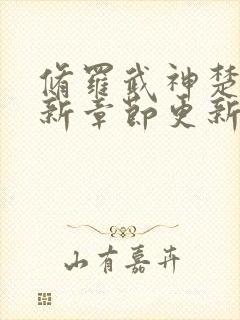 脩羅武神楚
新章節更新
山有嘉卉